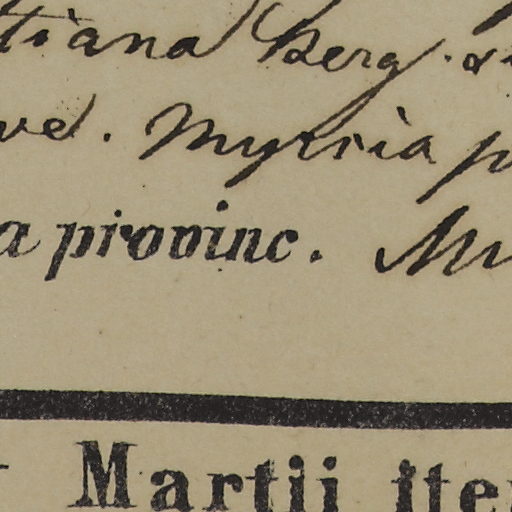 tiana Berg.
ve. Myrcia p
a provinc. Mi
Martii iter